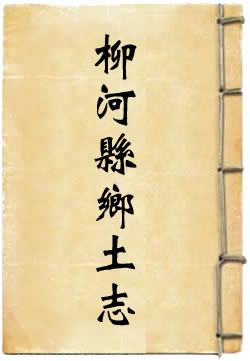 柳河縣鄉土志